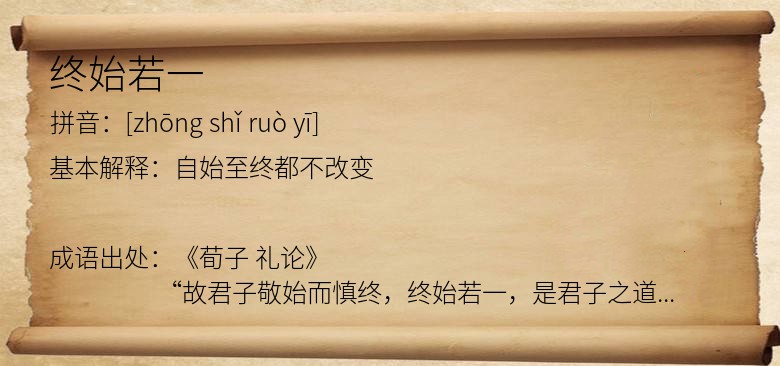 终始若一
拼音：[zhōng shǐ ruò yī]
基本解释：自始至终都不改变
成语出处：《荀子 礼论》
“故君子敬始而慎终，终始若一，是君子之道...